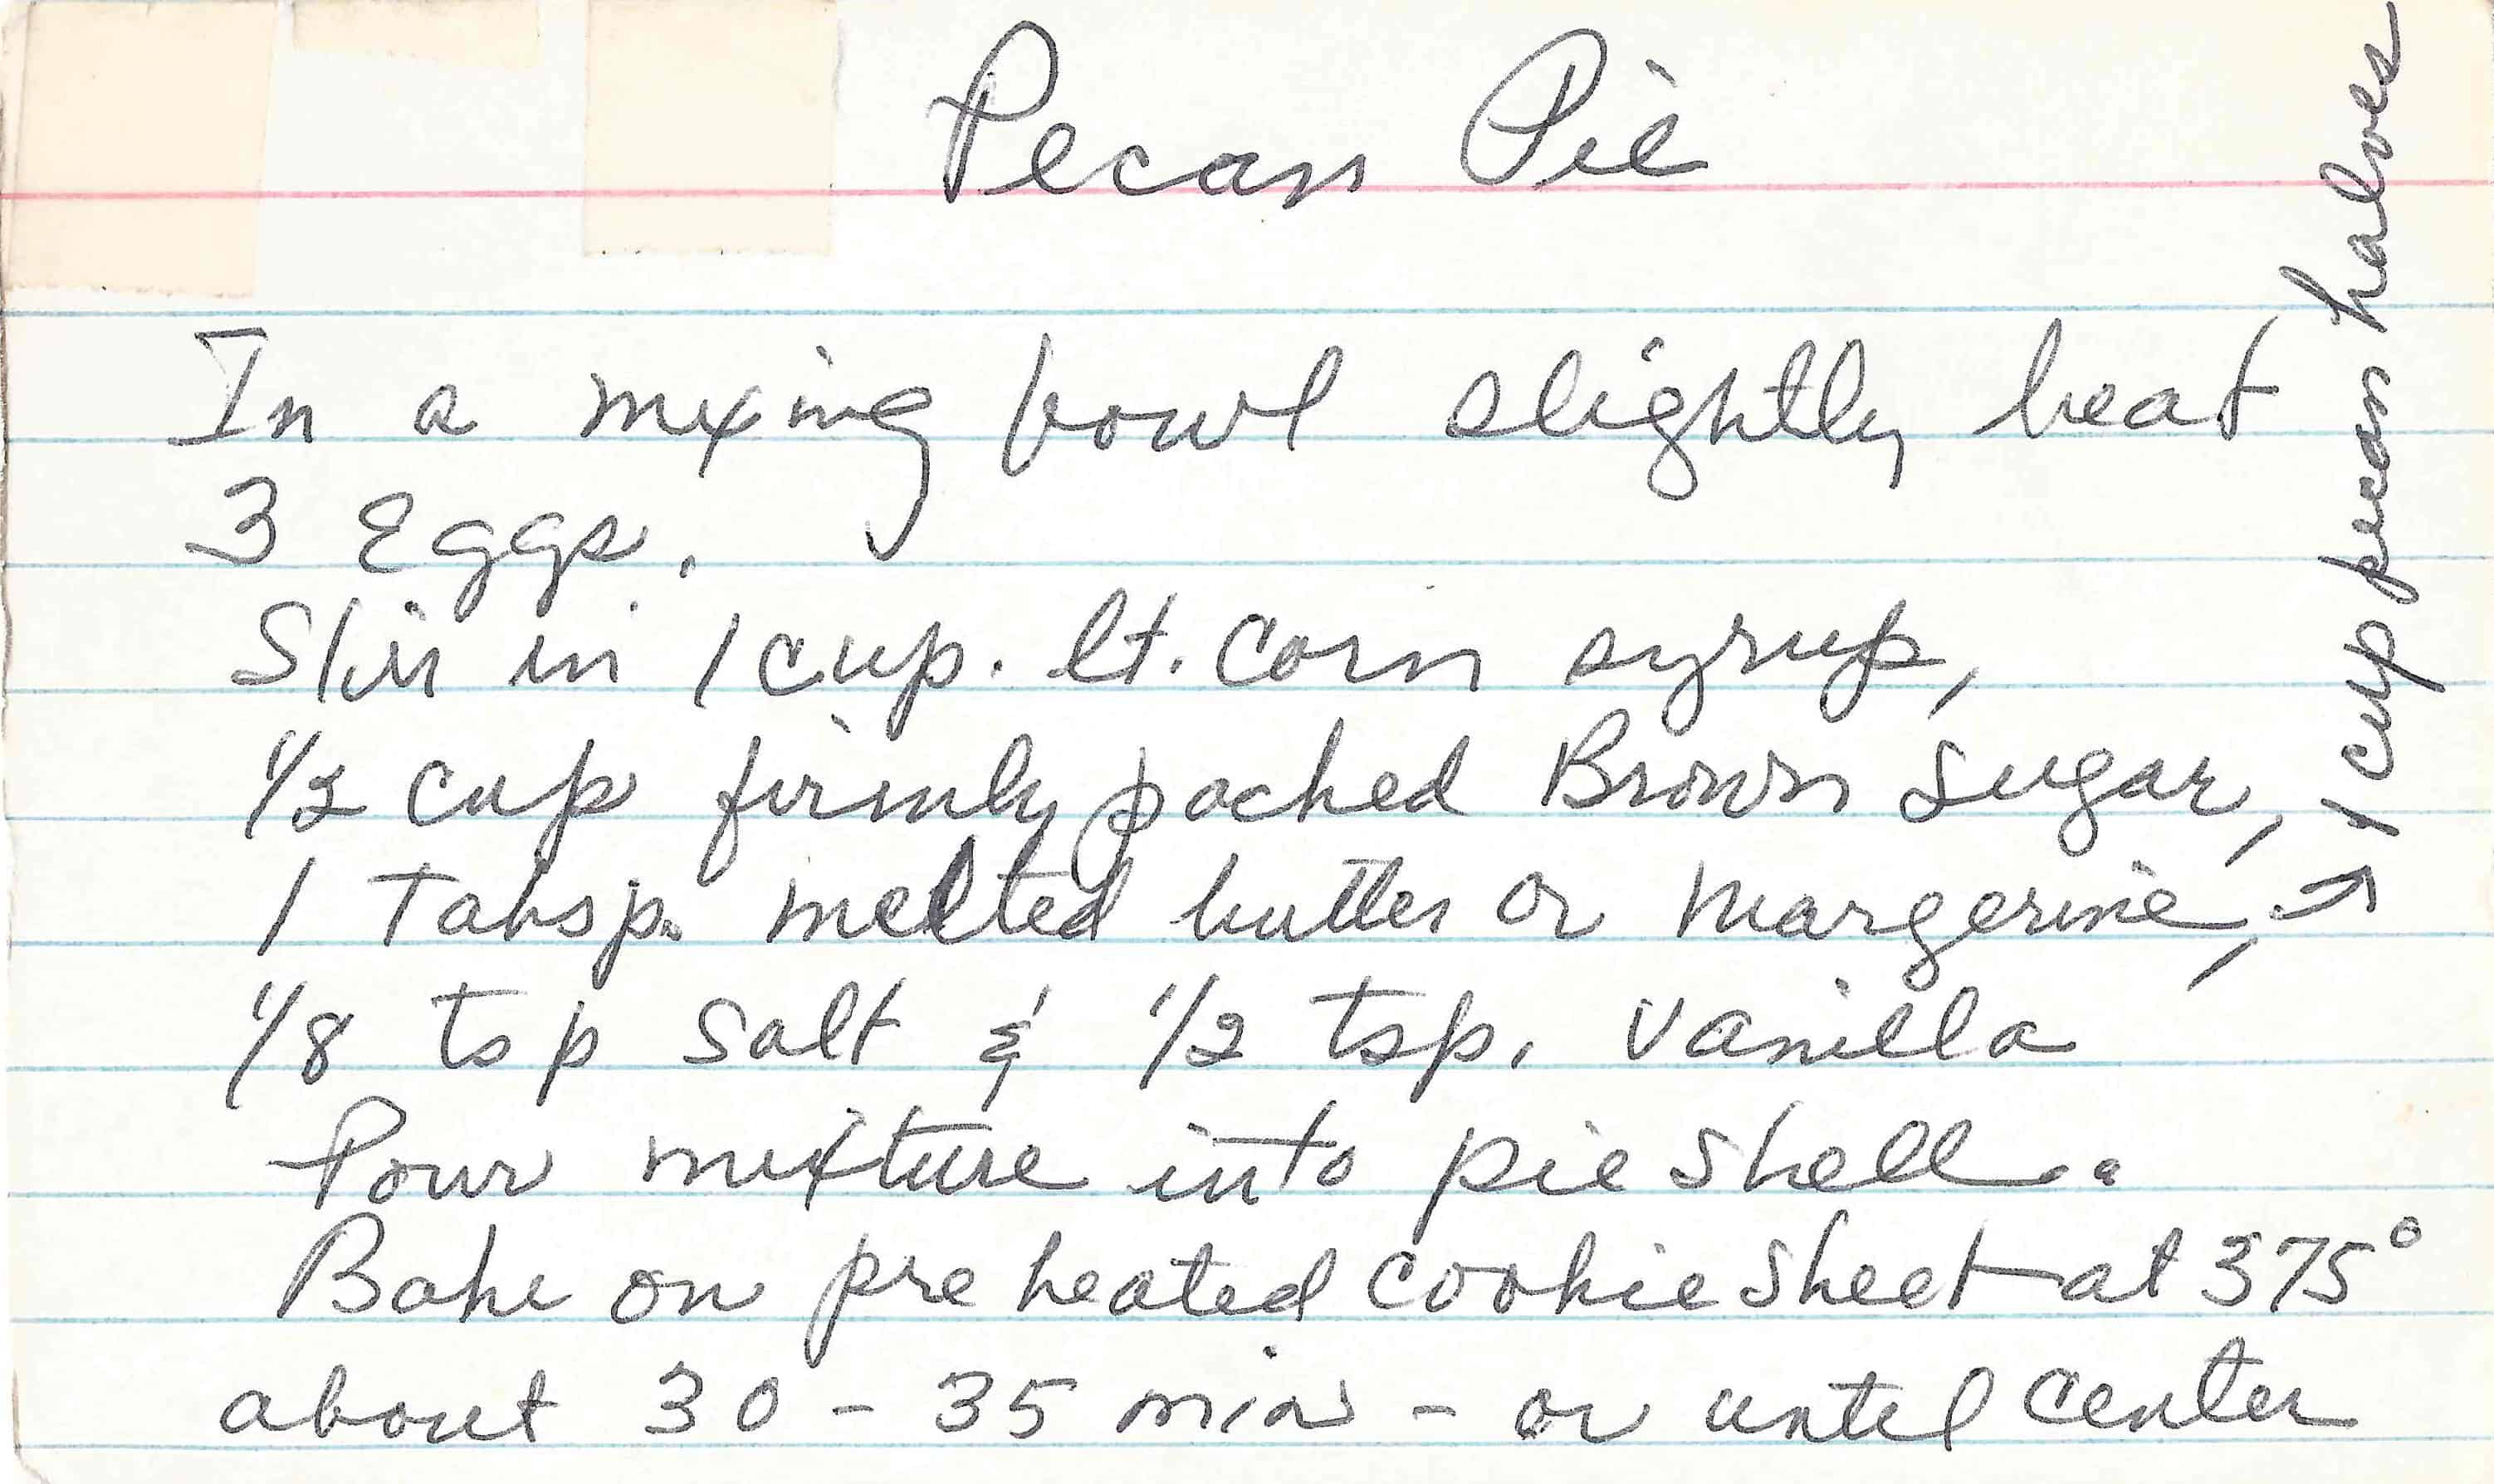 Pecan Pie
In a mixing bowl slightly beat
3 Eggs.
Stir in 1 cup. lt. corn syrup,
1/2 cup firmly packed Brown Sugar,
1 Tabsp. melted butter or margerine, →
1 cup pecan halves
1/8 tsp salt & 1/2 tsp. vanilla
Pour mixture into pie shell..
Bake on pre heated cookie sheet at 375°
about 30 - 35 min - or until center